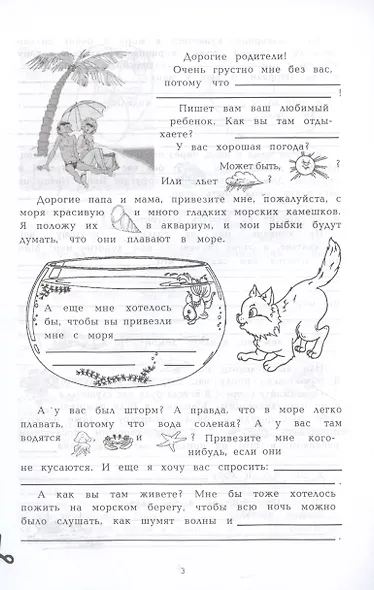 Дорогие родители!
Очень грустно мне без вас,
потому что
!
Пишет вам ваш любимый
ребенок. Как вы там отды-
хаете?
У вас хорошая погода?
Может быть, ?
Или льет ?
Дорогие папа и мама, привезите мне, пожалуйста, с
моря красивую и много гладких морских камешков.
Я положу их в аквариум, и мои рыбки будут
думать, что они плавают в море.
А еще мне хотелось
бы, чтобы вы привезли
мне с моря
А у вас был шторм? А правда, что в море легко
плавать, потому что вода соленая? А у вас там
водятся , и ? Привезите мне кого-
нибудь, если они
не кусаются. И еще я хочу вас спросить:
А как вы там живете? Мне бы тоже хотелось
пожить на морском берегу, чтобы всю ночь можно
было слушать, как шумят волны и
3